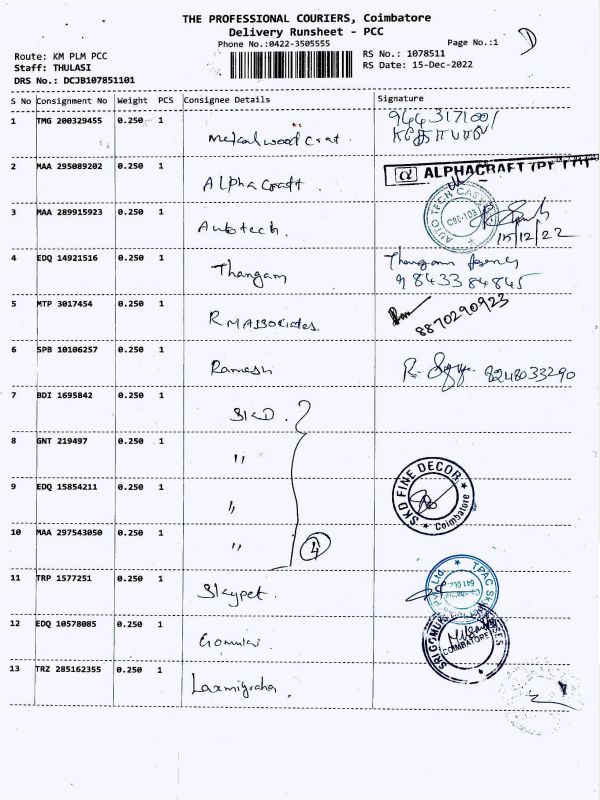 THE PROFESSIONAL COURIERS, Coimbatore
Delivery Runsheet - PCC
Phone No.:0422-3505555
Page No.:1
Route: KM PLM PCC
RS No.: 1078511
Staff: THULASI
RS Date: 15-Dec-2022
DRS No.: DCJB107851101
S No Consignment No Weight PCS Consignee Details Signature
1 TMG 200329455 0.250 1 9443171001
2 MAA 295089202 0.250 1 Alpha Craft . ALPHACRAFT
3 MAA 289915923 0.250 1 Autotech . AUTO TECH 15/12/22
4 EDQ 14921516 0.250 1 Thangam Thangam Agency
9843384845
5 MTP 3017454 0.250 1 RMAssociates. 8870290923
6 SPB 10106257 0.250 1 Ramesh 8248033290
7 BDI 1695842 0.250 1 SKD .
8 GNT 219497 0.250 1 "
9 EDQ 15854211 0.250 1 " SKD FINE DECOR Coimbatore
10 MAA 297543050 0.250 1 " 4
11 TRP 1577251 0.250 1 Skypet . TPAC
12 EDQ 10578085 0.250 1 COIMBATORE
13 TRZ 285162355 0.250 1 Laxmigraha .